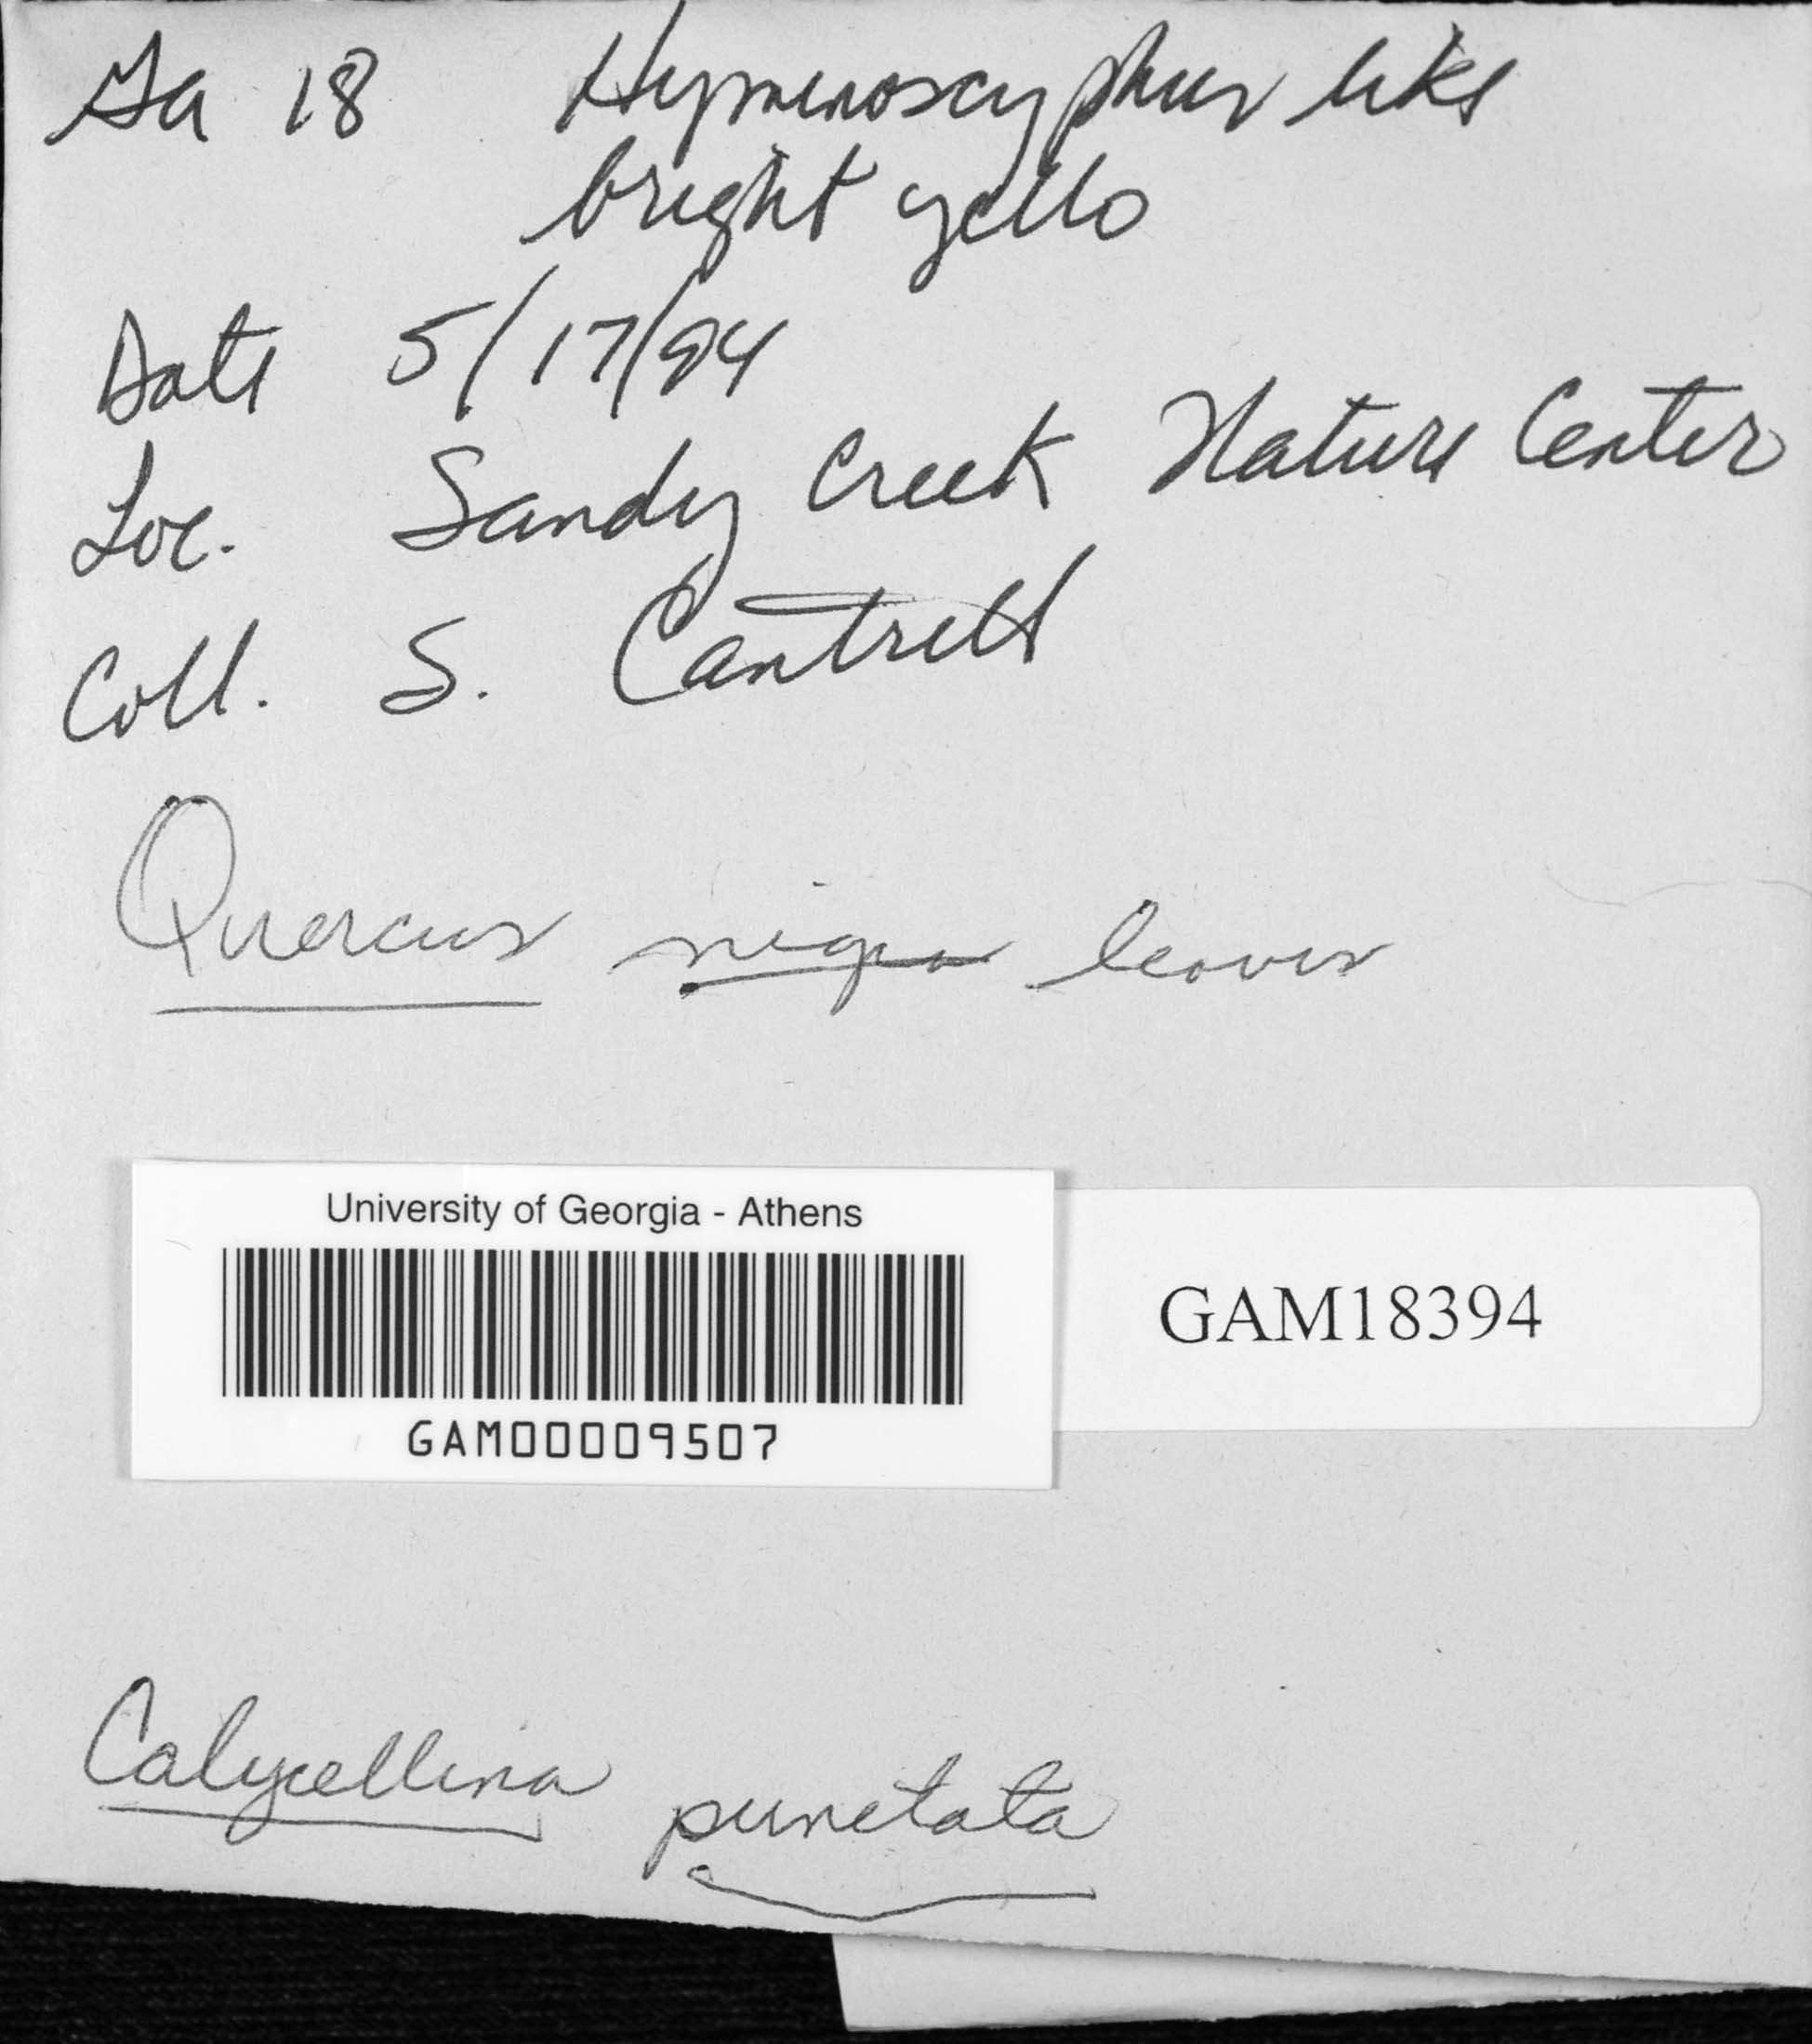 Ga 18 Hymenoscyphus like
bright yello
Date 5/17/94
Loc. Sandy Creek Nature Center
Coll. S. Cantrell
Quercus nigra leaves
University of Georgia - Athens
GAM00009507
GAM18394
Calycellina punctata